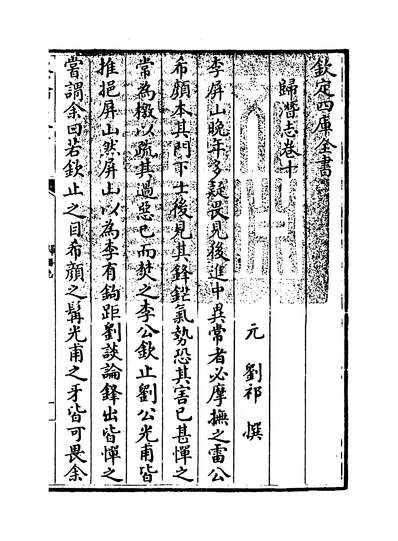 欽定四庫全書
歸潛志卷十
元 劉祁 撰
李屏山晚年多疑畏見後進中異常者必摩撫之雷公
希顏本其門下士後見其鋒鋩氣勢恐其害已甚憚之
常為檄以疏其過惡已而焚之李公欽止劉公光甫皆
推挹屏山然屏山以為李有鈎距劉談論鋒出皆憚之
嘗謂余曰若欽止之目希顏之髯光甫之牙皆可畏余